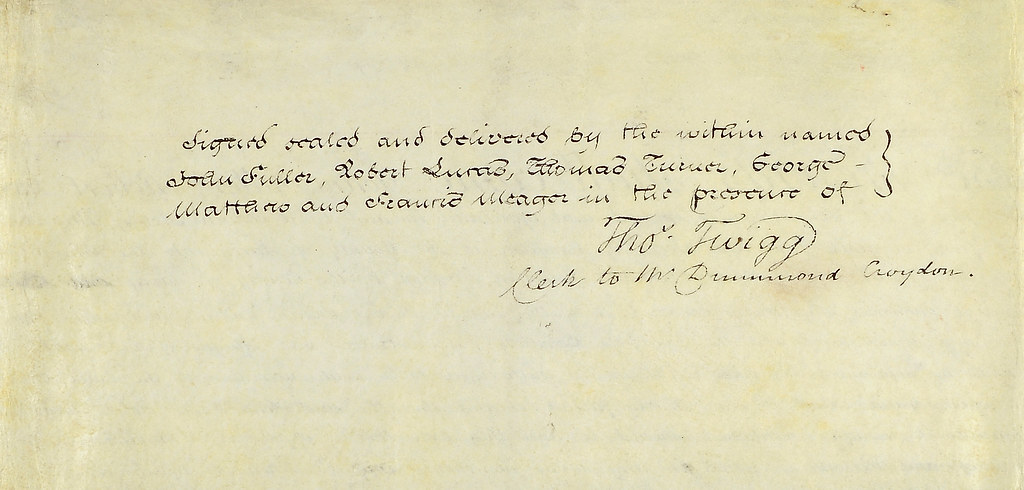 Signed sealed and delivered by the within named
John Fuller, Robert Lucas, Thomas Turner, George -
Matthew and Francis Meager in the presence of
Thos. Twigg
Clerk to Mr Drummond Croydon.